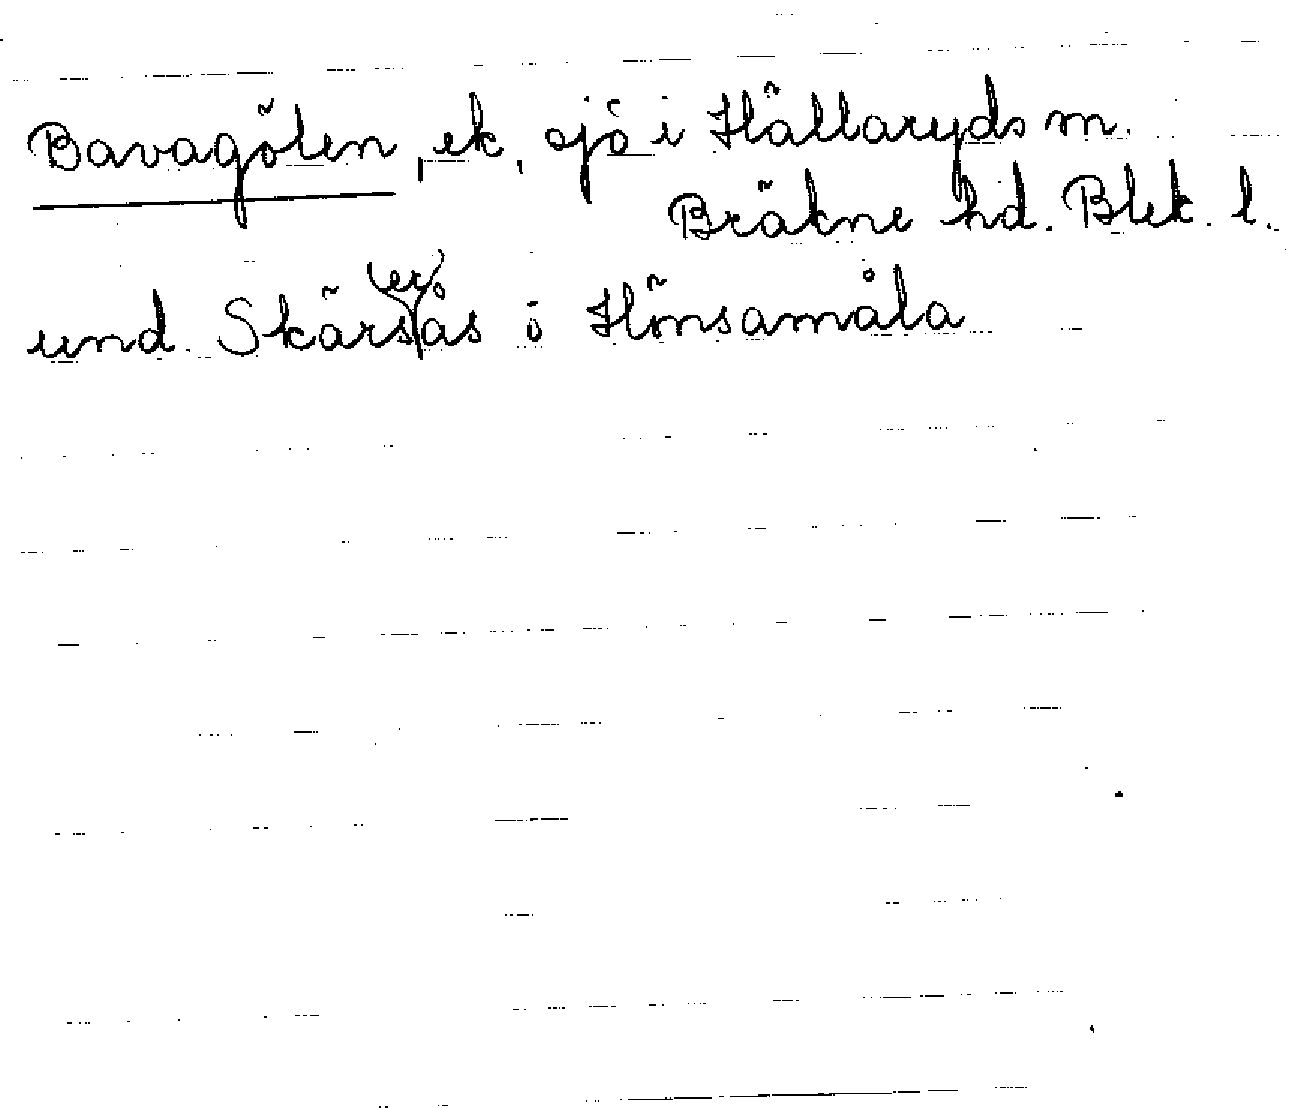 Bavagölen, ek, sjö i Hällaryds m.
Bräkne hd. Blek. l.
und. Skärsås ö Hönsamåla